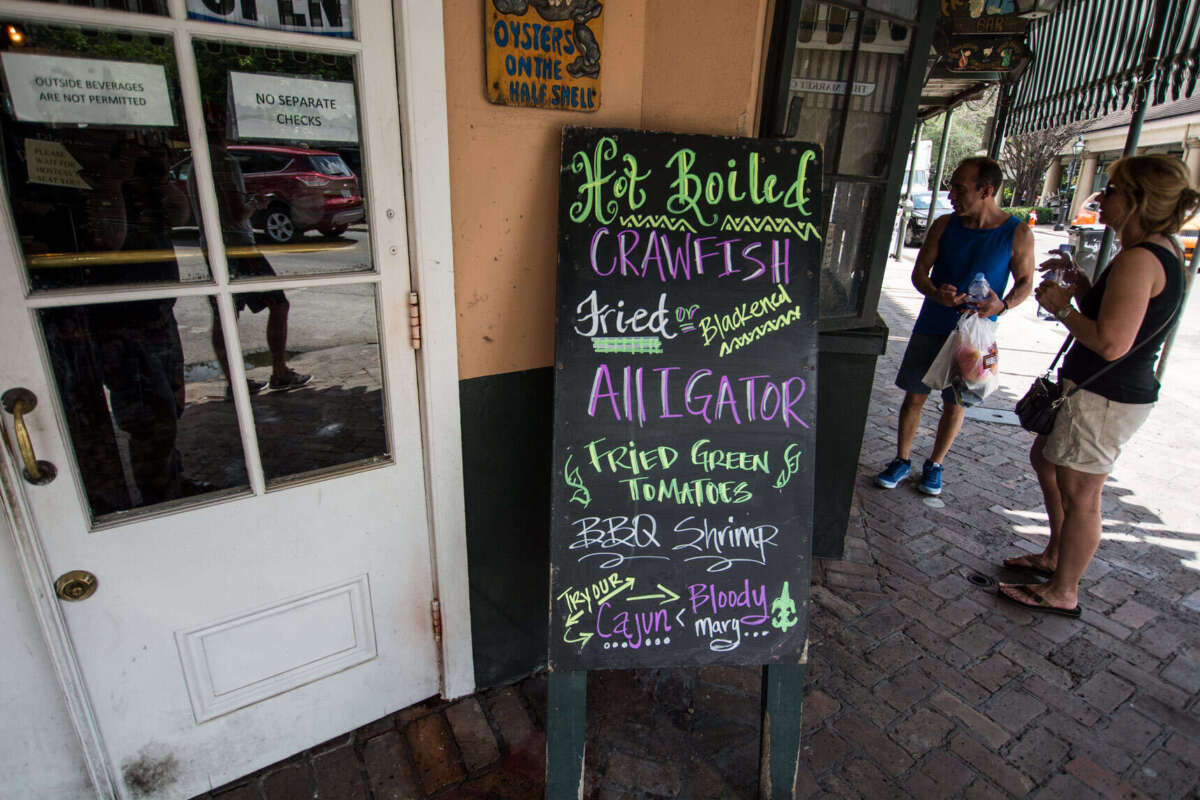 OPEN
OUTSIDE BEVERAGES
ARE NOT PERMITTED
NO SEPARATE
CHECKS
PLEASE
WAIT FOR
HOSTESS
SEAT YOU
OYSTERS
ON THE
HALF SHELL
Hot Boiled
CRAWFISH
Fried or Blackened
AllIGATOR
FRIED GREEN
TOMATOES
BBQ Shrimp
TRY OUR
Cajun
Bloody
Mary
BAR